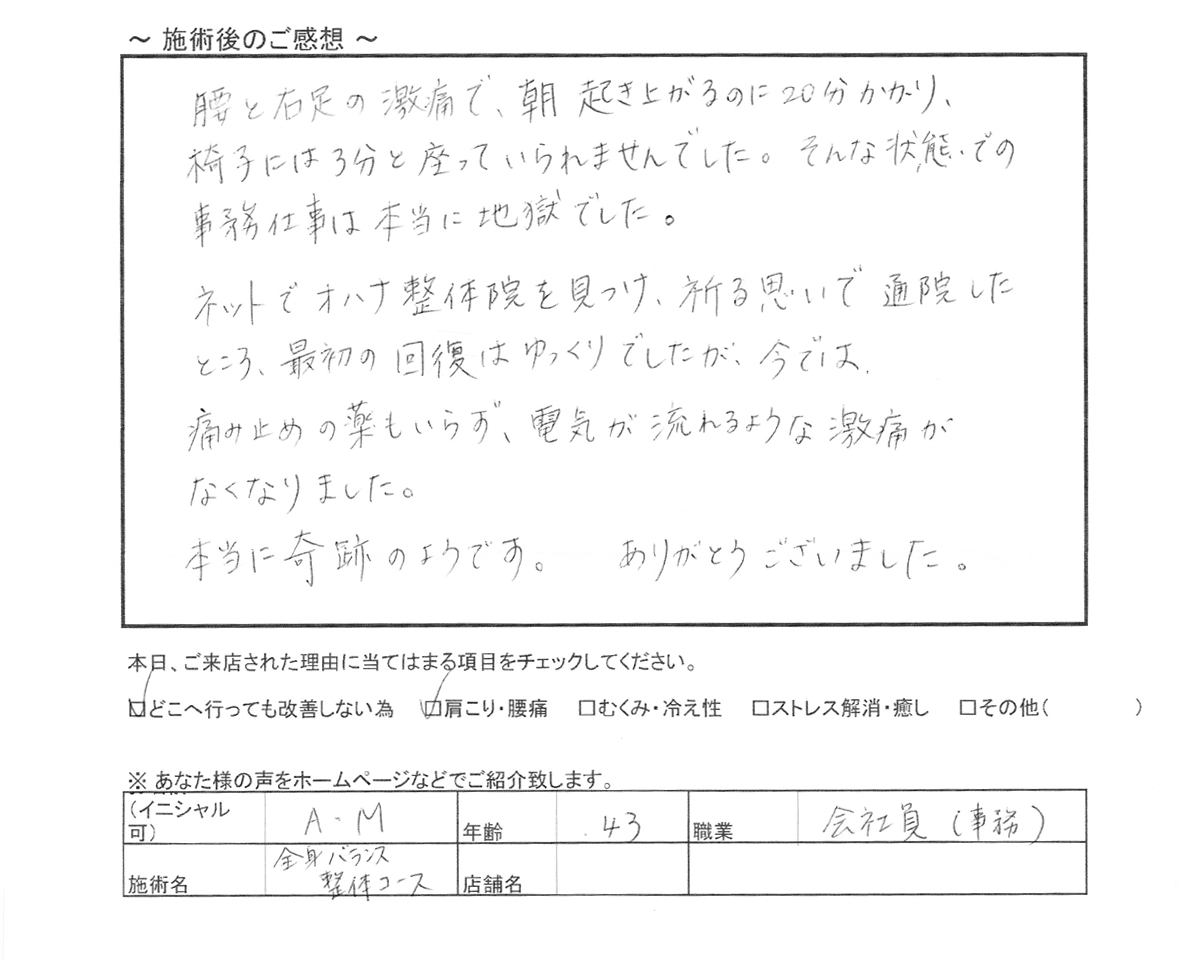 ～ 施術後のご感想 ～
腰と右足の激痛で、朝 起き上がるのに20分かかり、
椅子には3分と座っていられませんでした。そんな状態での
事務仕事は本当に地獄でした。
ネットでオハナ整体院を見つけ、祈る思いで通院した
ところ、最初の回復はゆっくりでしたが、今では、
痛み止めの薬もいらず、電気が流れるような激痛が
なくなりました。
本当に奇跡のようです。 ありがとうございました。
本日、ご来店された理由に当てはまる項目をチェックしてください。
☑どこへ行っても改善しない為 ☑肩こり・腰痛 □むくみ・冷え性 □ストレス解消・癒し □その他( )
※ あなた様の声をホームページなどでご紹介致します。
(イニシャル可) A・M 年齢 43 職業 会社員(事務)
施術名 全身バランス整体コース 店舗名